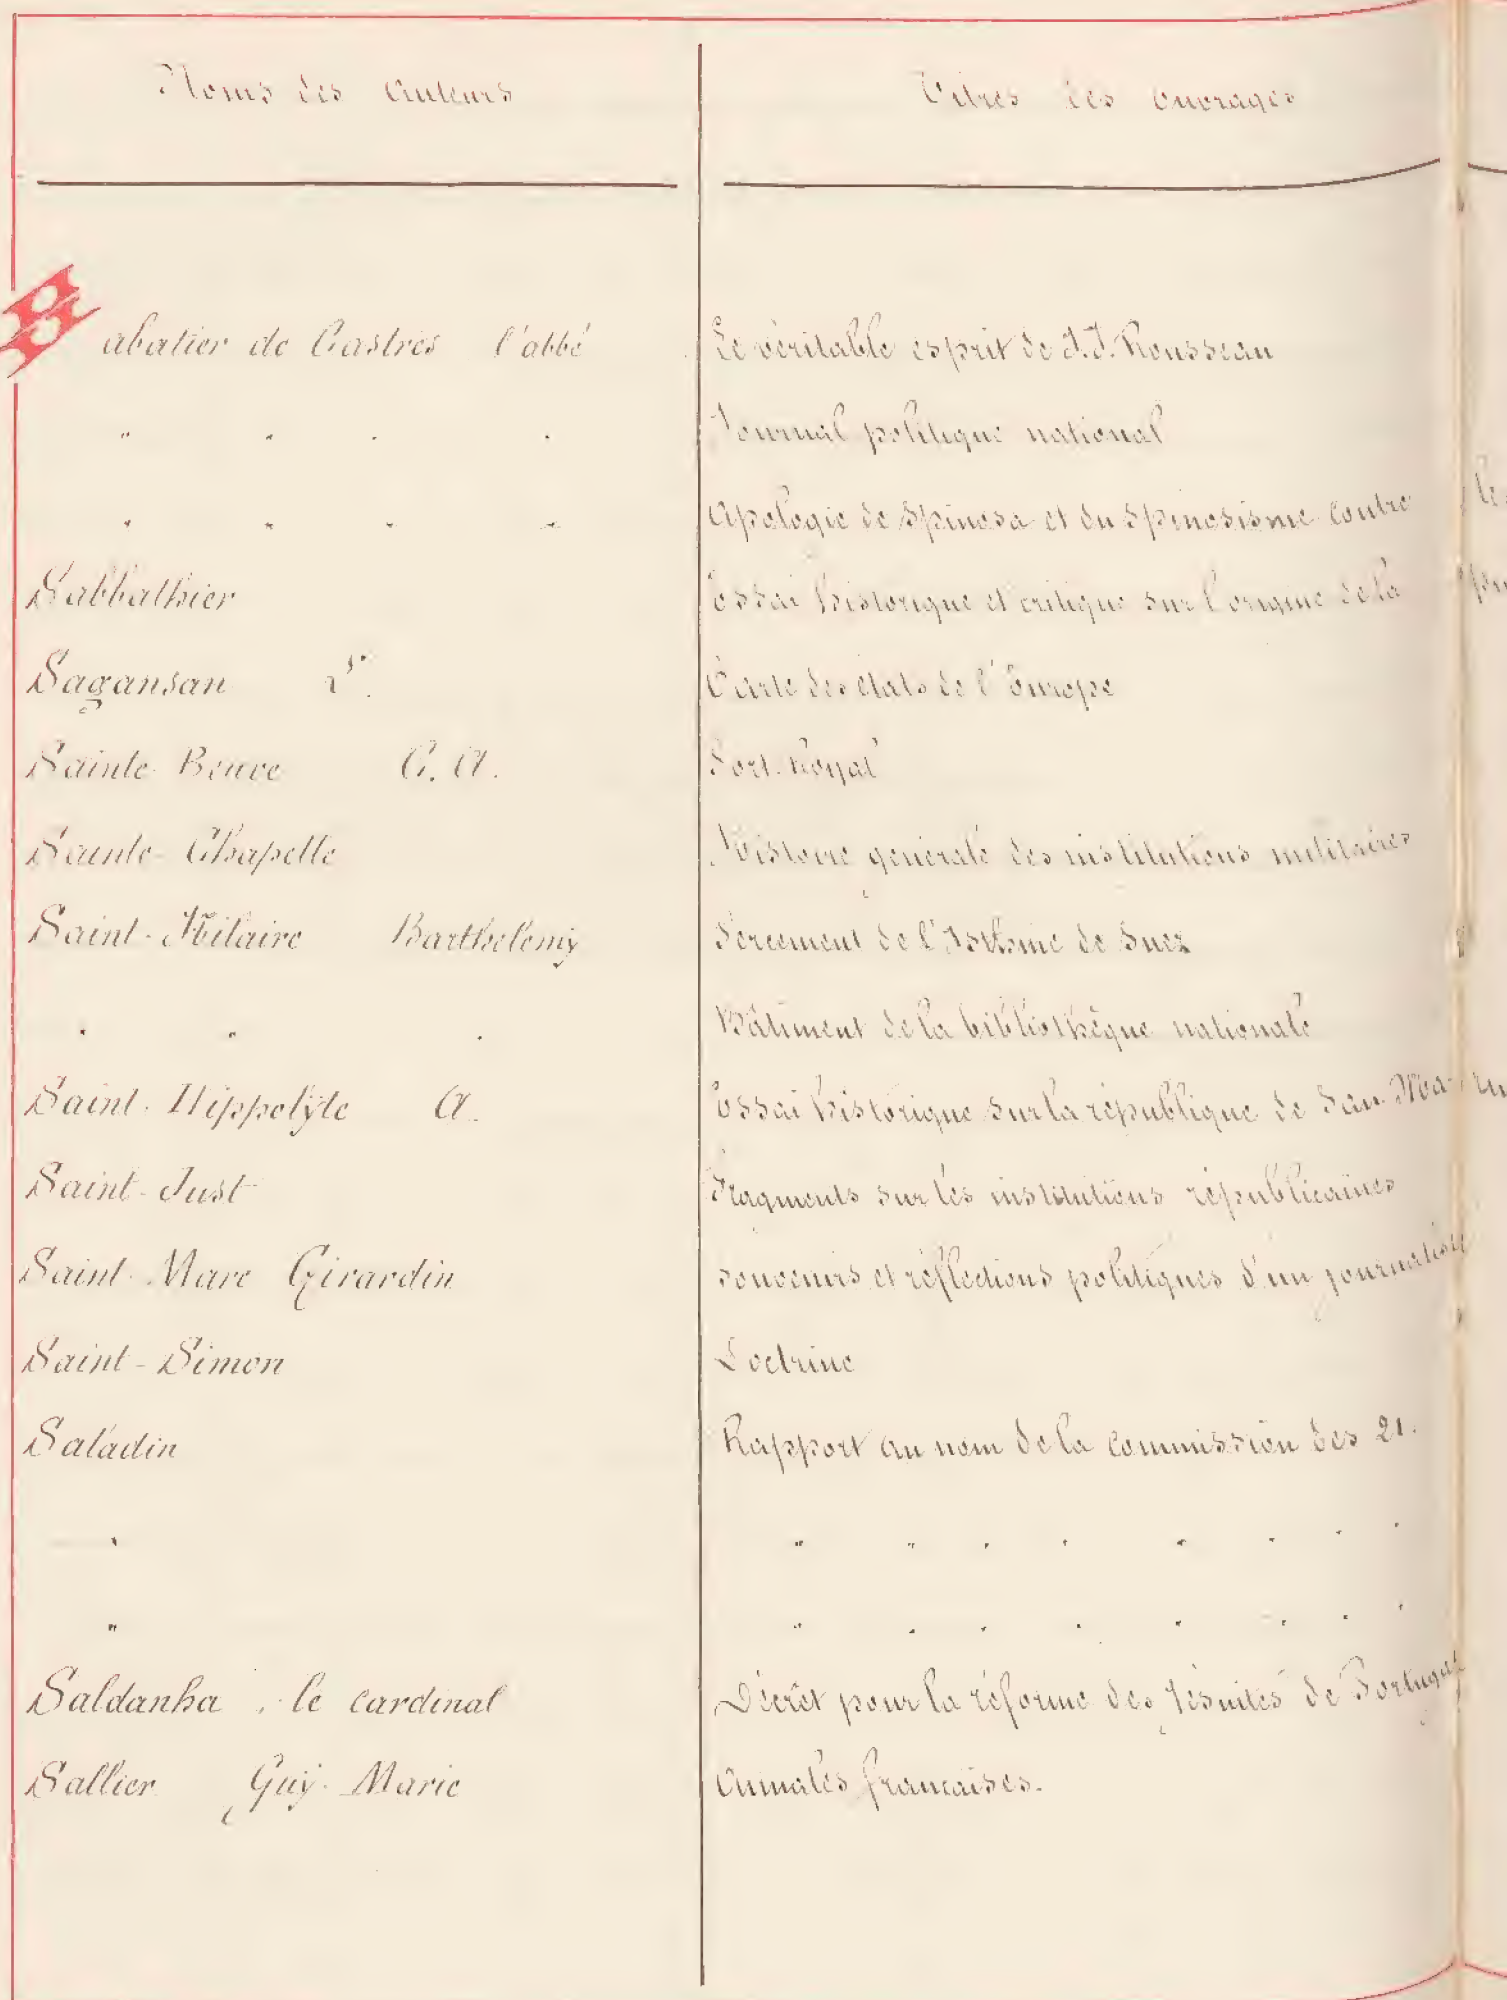 Noms des Auteurs	Titres des ouvrages
Sabatier de Castres l'abbé	Le véritable esprit de J.J. Rousseau
" " " "	Journal politique national
" " " "	Apologie de Spinosa et du Spinosisme contre les
Sabbathier	Essai historique et critique sur l'origine de la
Sagansan	Carte des états de l'Europe
Sainte-Beuve C. A.	Port-Royal
Sainte-Chapelle	Histoire générale des institutions militaires
Saint-Hilaire Barthelemy	Percement de l'Isthme de Suez
" " "	Bâtiment de la bibliothèque nationale
Saint-Hippolyte A.	Essai historique sur la république de San-Ma-
Saint-Just	Fragments sur les institutions républicaines
Saint-Marc Girardin	Souvenirs et réflections politiques d'un journaliste
Saint-Simon	Doctrine
Saladin	Rapport au nom de la commission des 21.
"	" " " " " " " "
"	" " " " " " " "
Saldanha, le cardinal	Décret pour la réforme des Jésuites de Portugal
Sallier Guy-Marie	Annales françaises.